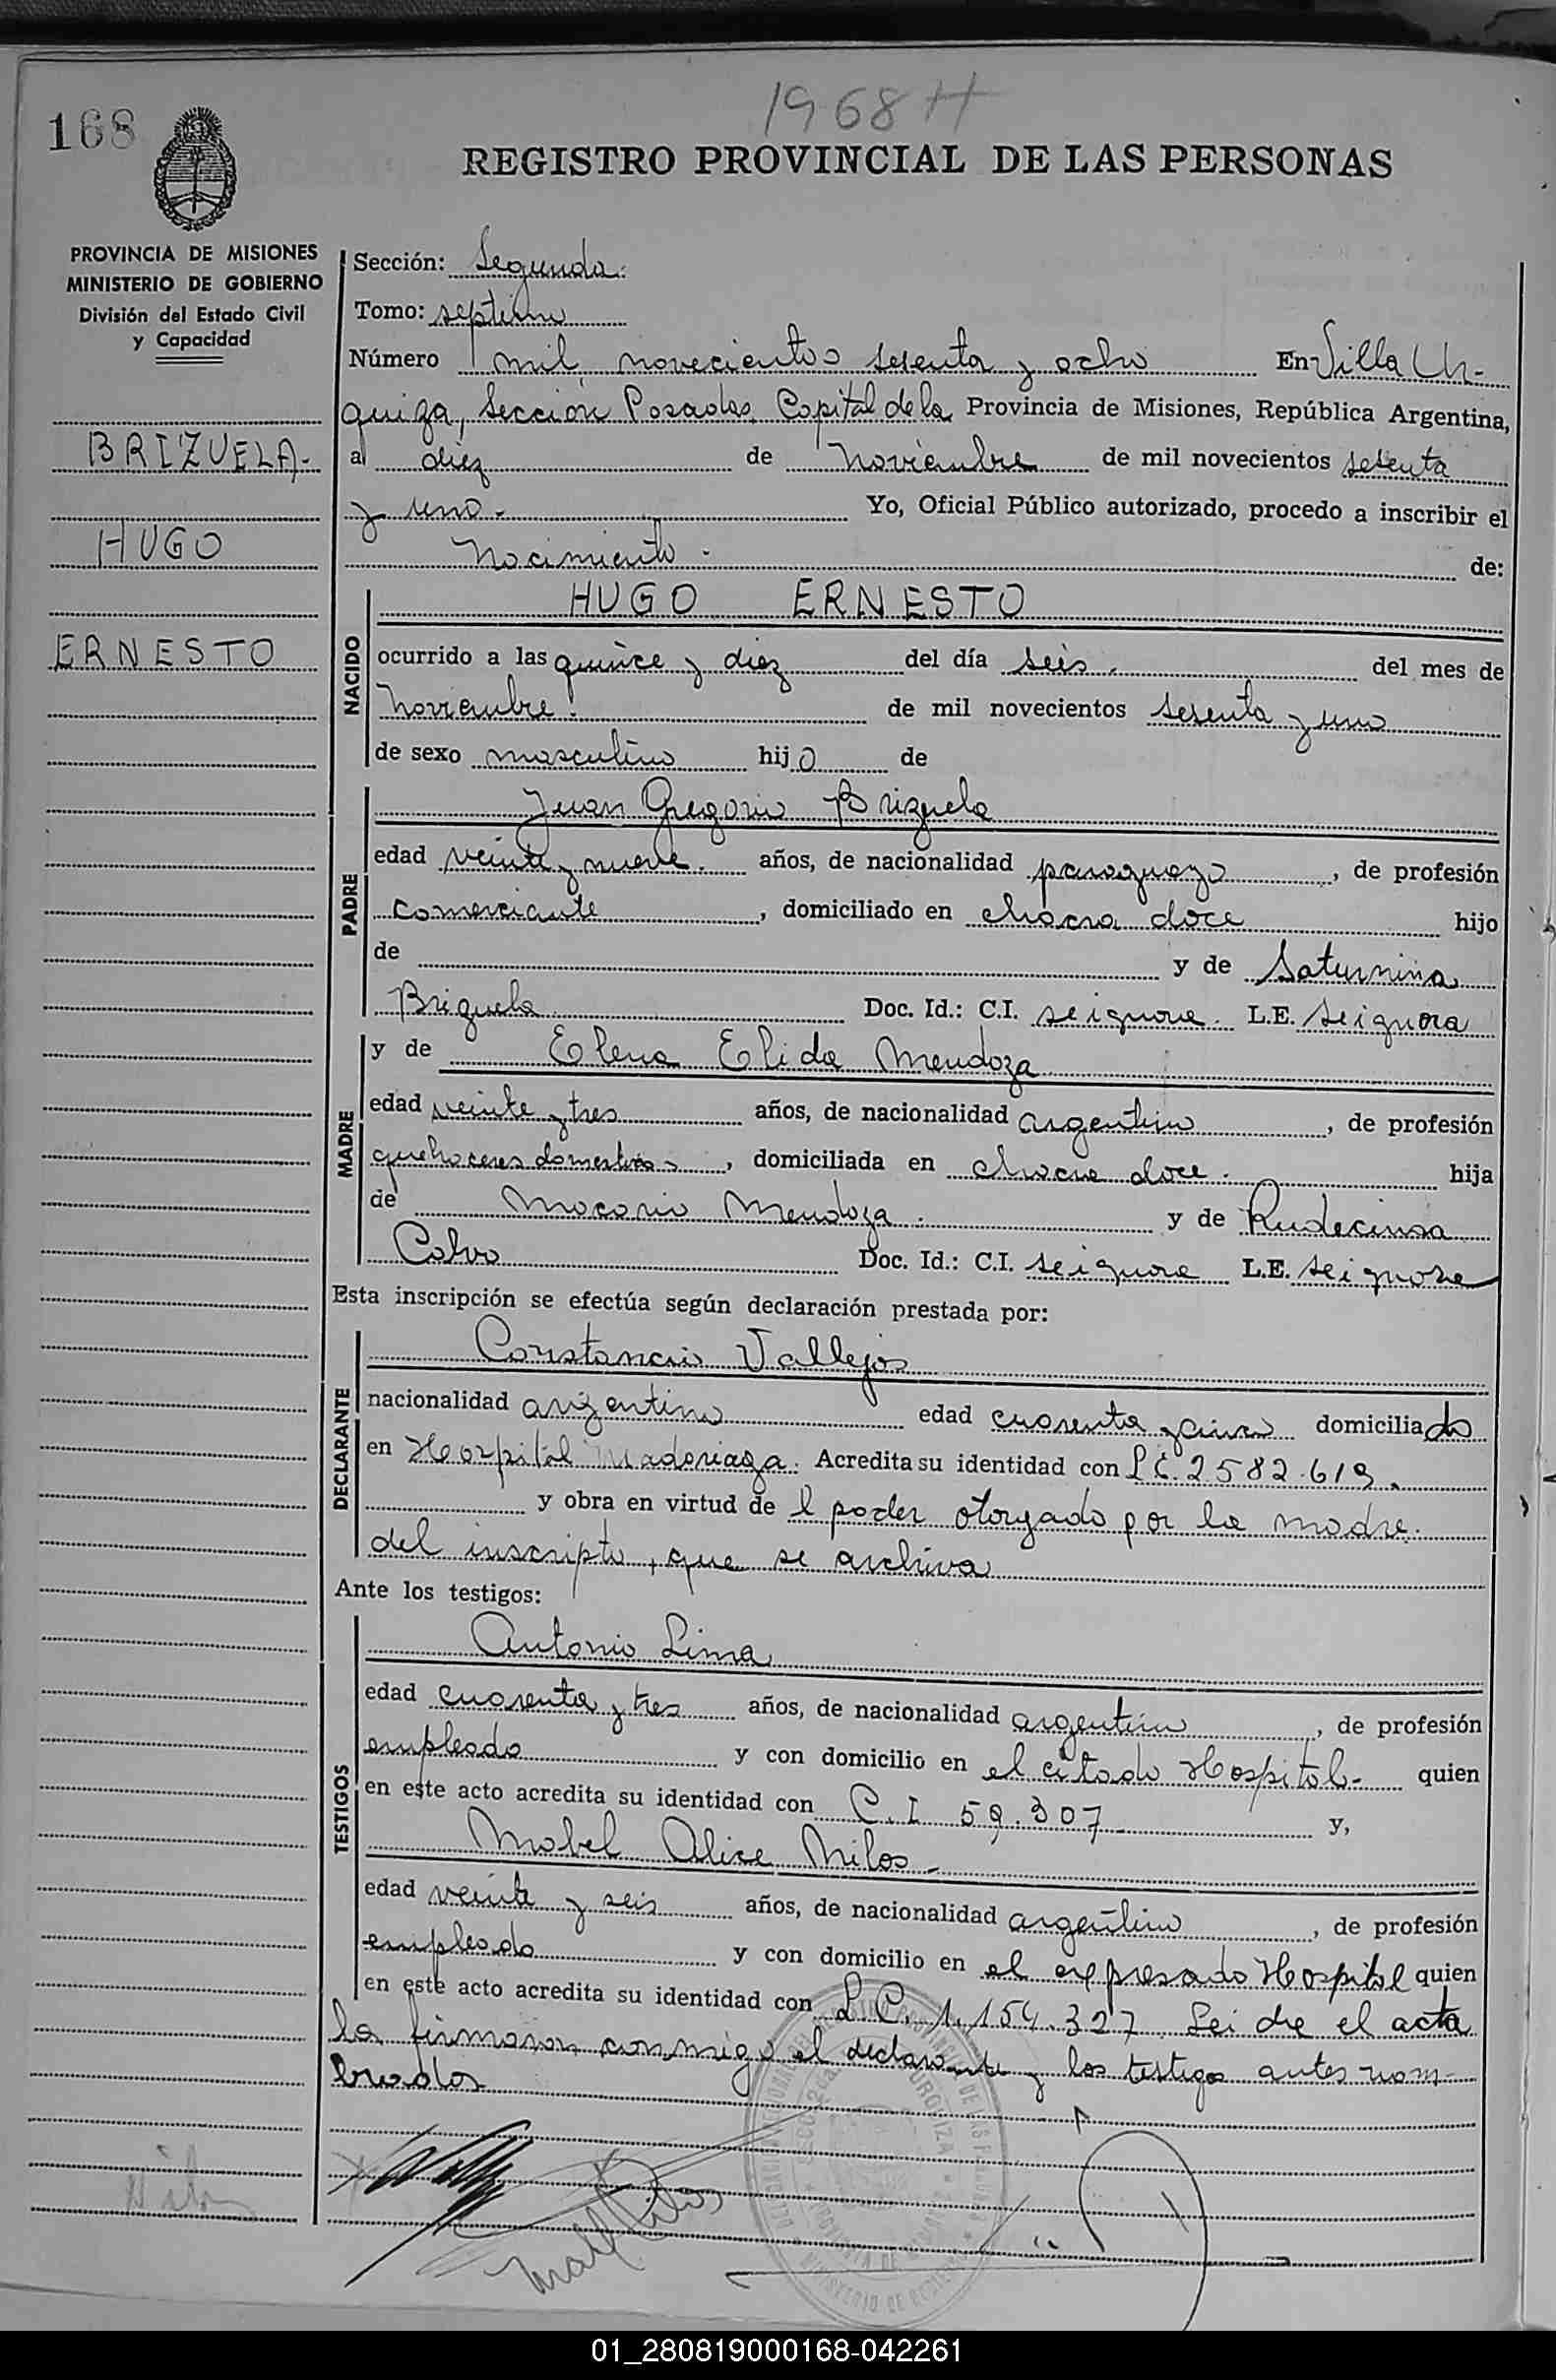 1968 H
168
REGISTRO PROVINCIAL DE LAS PERSONAS
PROVINCIA DE MISIONES
MINISTERIO DE GOBIERNO
División del Estado Civil
y Capacidad
BRIZUELA-
HUGO
ERNESTO
Sección: Segunda.
Tomo: septimo
Número mil novecientos sesenta y ocho En Villa Ur-
quiza, Sección Posadas Capital de la Provincia de Misiones, República Argentina,
a diez de noviembre de mil novecientos sesenta
y uno.- Yo, Oficial Público autorizado, procedo a inscribir el
nacimiento. de:
NACIDO
HUGO ERNESTO
ocurrido a las quince y diez del día seis. del mes de
noviembre. de mil novecientos sesenta y uno
de sexo masculino hijo de
PADRE
Juan Gregorio Brizuela
edad veinte y nueve. años, de nacionalidad paraguayo, de profesión
comerciante, domiciliado en chacra doce hijo
de y de Saturnina
Brizuela Doc. Id.: C.I. se ignora. L.E. se ignora
MADRE
y de Elena Elida Mendoza
edad veinte y tres años, de nacionalidad argentina, de profesión
quehaceres domesticos, domiciliada en chacra doce. hija
de Macario Mendoza. y de Rudecinda
Calvo Doc. Id.: C.I. se ignora L.E. se ignora
Esta inscripción se efectúa según declaración prestada por:
DECLARANTE
Constancio Vallejos
nacionalidad argentino edad cuarenta y cinco domiciliado
en Hospital Madariaga. Acredita su identidad con L.E. 2582.619.
y obra en virtud de l poder otorgado por la madre.
del inscripto, que se archiva
Ante los testigos:
TESTIGOS
Antonio Lima
edad cuarenta y tres años, de nacionalidad argentino, de profesión
empleado y con domicilio en el citado Hospital- quien
en este acto acredita su identidad con C.I 59.307 y,
Mabel Alice Milos-
edad veinte y seis años, de nacionalidad argentina, de profesión
empleada y con domicilio en el expresado Hospital quien
en este acto acredita su identidad con L.C. 1.154.327 Leida el acta
la firmaron conmigo el declarante y los testigos antes nom-
brados
01_280819000168-042261